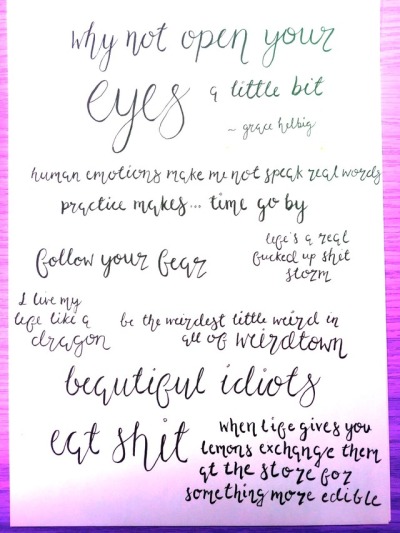 why not open your
eyes a little bit
~ grace helbig
human emotions make me not speak real words
practice makes... time go by
follow your fear
life's a real
fucked up shit
storm
I live my
life like a
dragon
be the weirdest little weird in
all of weirdtown
beautiful idiots
eat shit
when life gives you
lemons exchange them
at the store for
something more edible